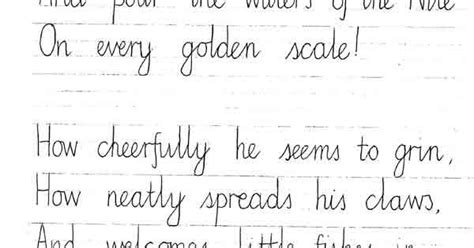 And pour the waters of the Nile
On every golden scale!
How cheerfully he seems to grin,
How neatly spreads his claws,
And welcomes little fishes in